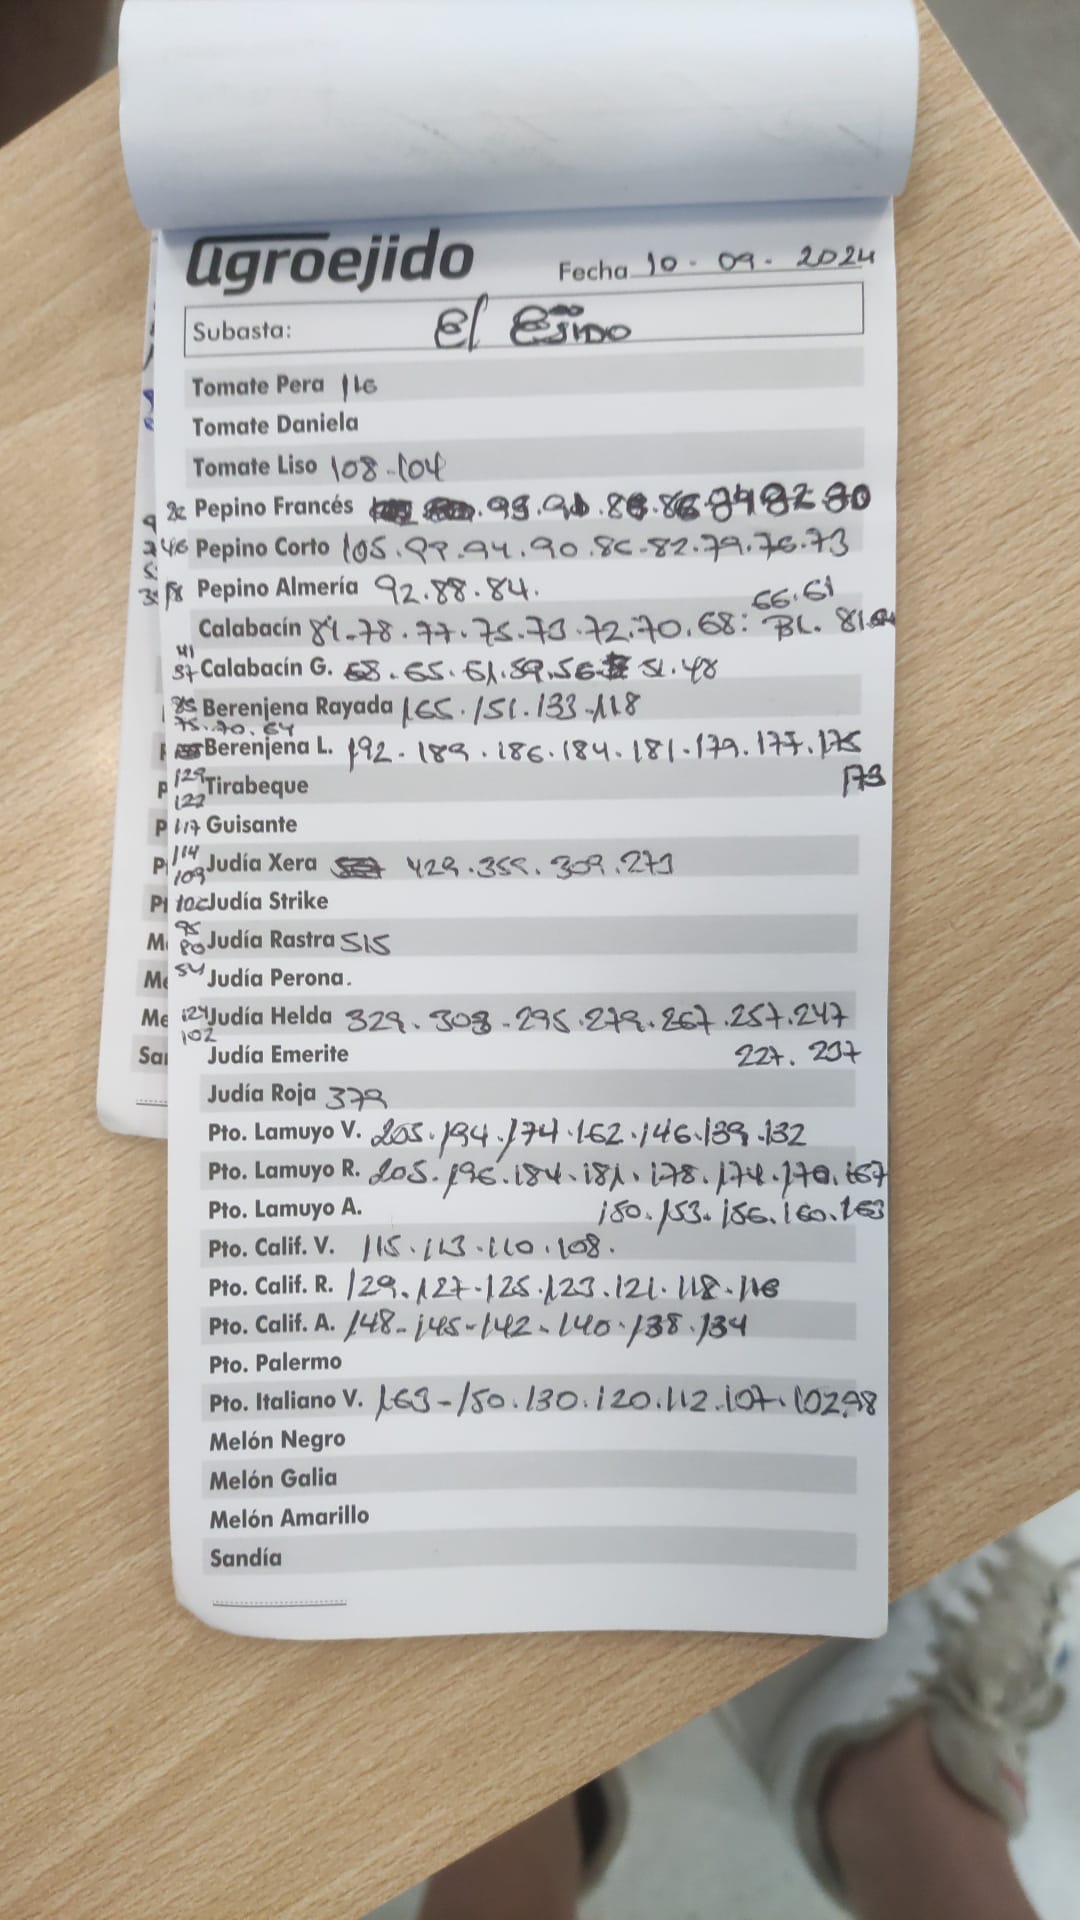 agroejido
Fecha 10-09-2024
Subasta: El Ejido
Tomate Pera 116
Tomate Daniela
Tomate Liso 108-104
Pepino Francés .82 80
46 Pepino Corto 105.99.94.90.86-82.79.76.73
Pepino Almería 92.88.84.
66.61
Calabacín 81-78.77.75.73.72.70.68: BL. 81.
41
37 Calabacín G. 68.65.61.59.56 51.48
85 Berenjena Rayada 165.151.133-118
75.70.64
Berenjena L. 192-189.186.184.181-179.177.175
129 Tirabeque 173
122
117 Guisante
114
109 Judía Xera 429.359.309.273
102 Judía Strike
95
80 Judía Rastra 515
54 Judía Perona.
124 Judía Helda 329.303-295.279.267.257.247
102
Judía Emerite 227. 237
Judía Roja 379
Pto. Lamuyo V. 205.194.174.162.146.139.132
Pto. Lamuyo R. 205.196.184.181.178.174.170.167
Pto. Lamuyo A. 150.153.156.160.163
Pto. Calif. V. 115.113.110.108.
Pto. Calif. R. 129.127-125.123.121.118-116
Pto. Calif. A. 148-145-142-140.138.134
Pto. Palermo
Pto. Italiano V. 163-150.130.120.112.107.102.98
Melón Negro
Melón Galia
Melón Amarillo
Sandía